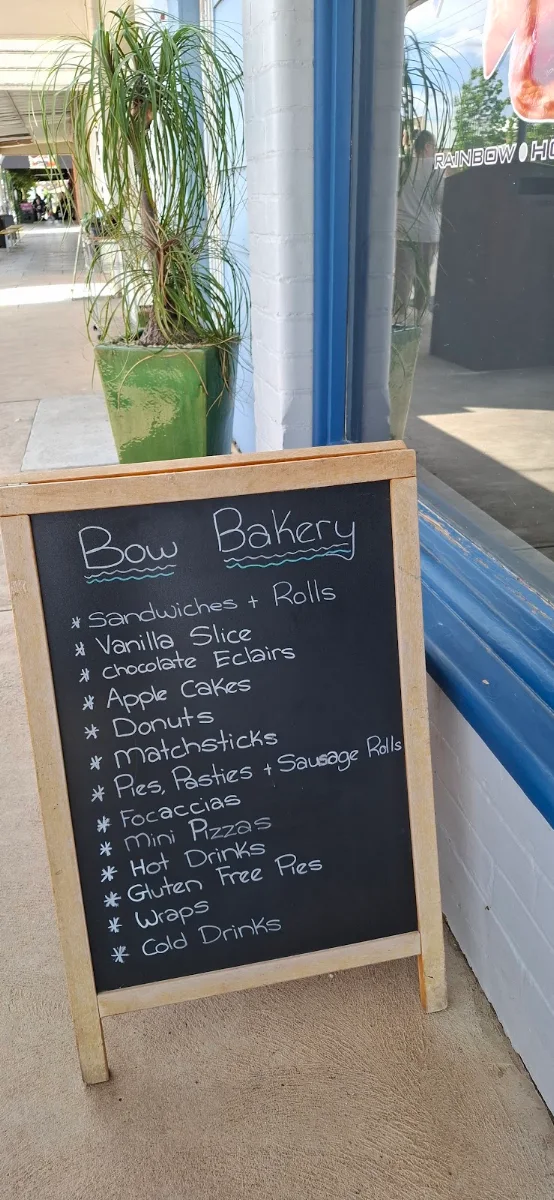 RAINBOW HO
Bow Bakery
* Sandwiches + Rolls
* Vanilla Slice
* chocolate Eclairs
* Apple Cakes
* Donuts
* Matchsticks
* Pies, Pasties + Sausage Rolls
* Focaccias
* Mini Pizzas
* Hot Drinks
* Gluten Free Pies
* Wraps
* Cold Drinks